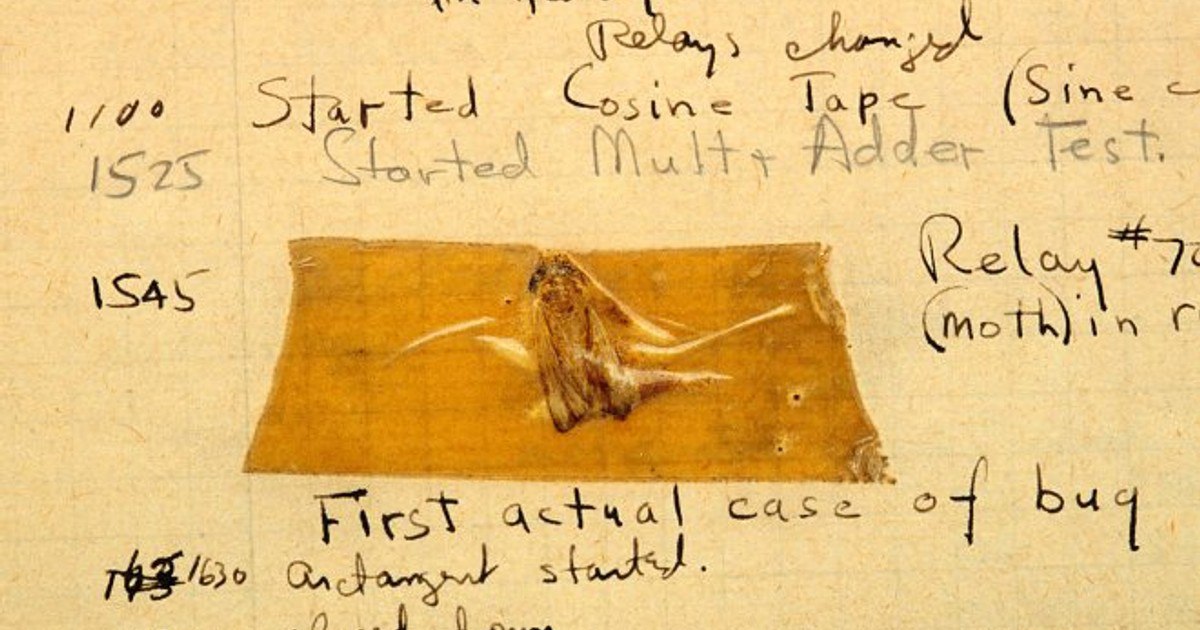 Relays changed
1100 Started Cosine Tape (Sine
1525 Started Mult + Adder Test.
1545 Relay #70
(moth) in
First actual case of bug
1630 arctangent started.